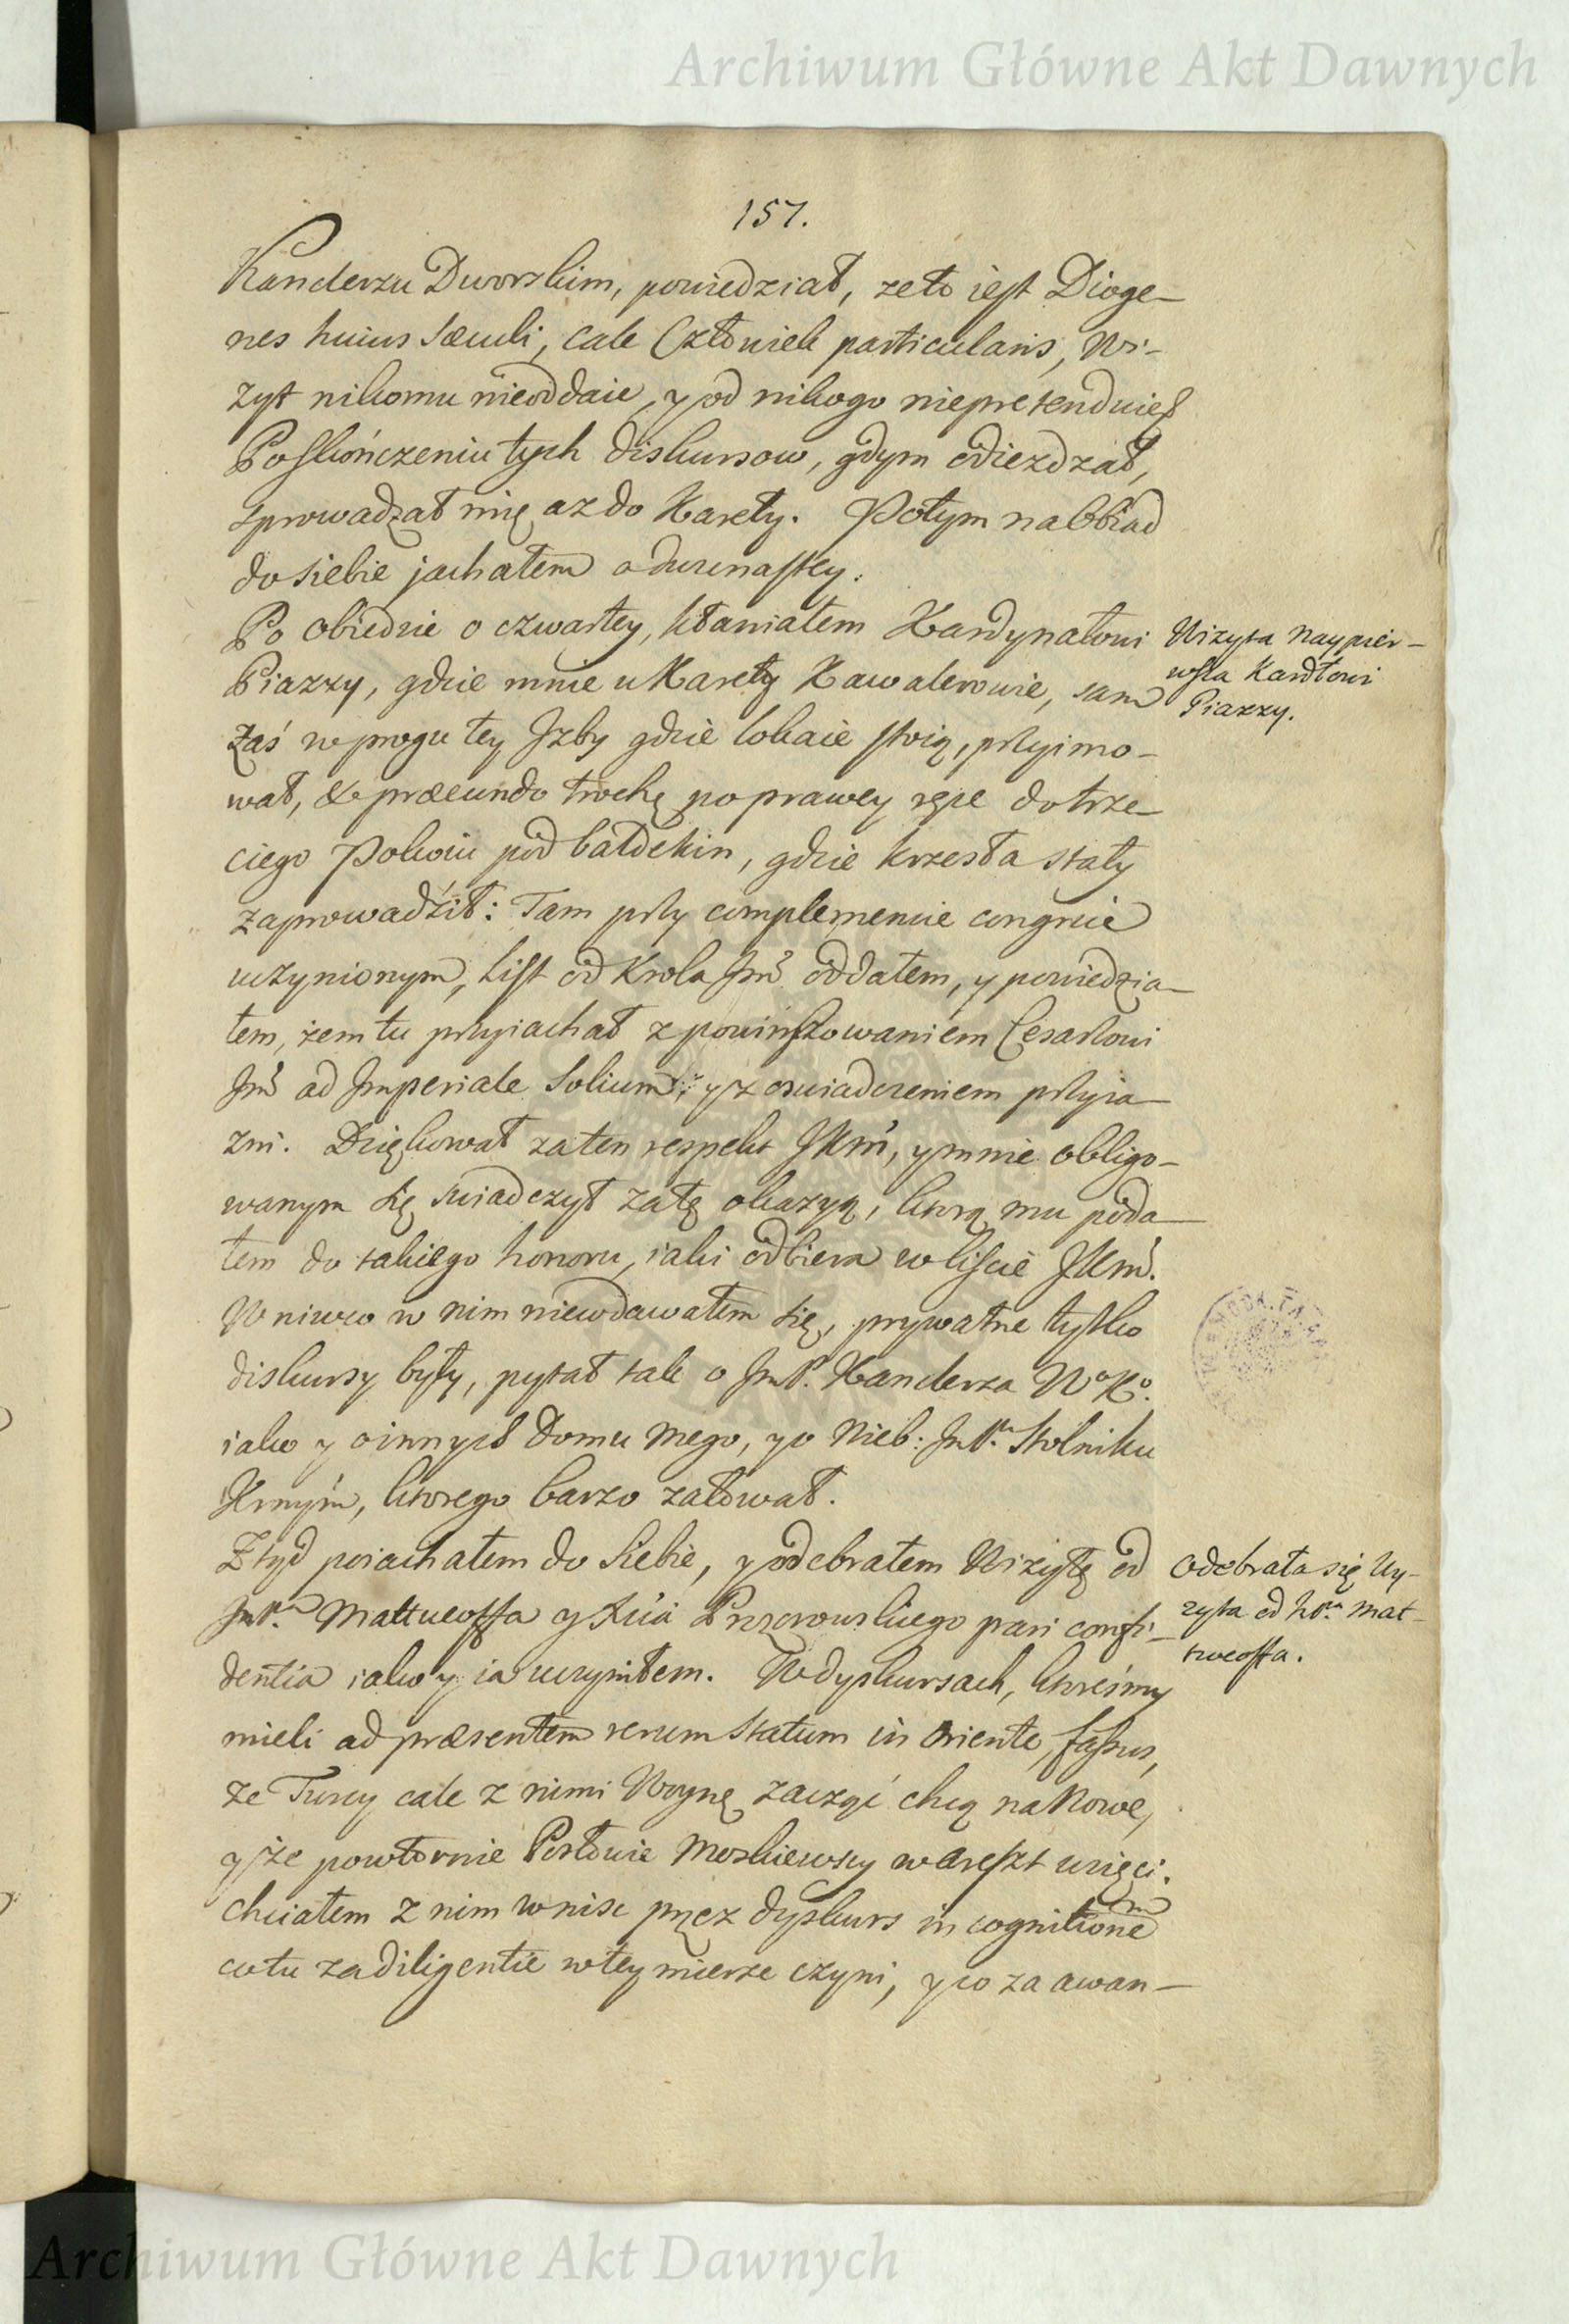 Archiwum Główne Akt Dawnych
157.
Kanclerzu Dworskim, powiedział, ze to iest Dioge-
nes huius Sæculi, cale Człowiek particularis, Wi-
zyt nikomu nieoddaie, y od nikogo niepretenduie.
Po skończeniu tych diskursow, gdym odiezdzał,
sprowadzał mię az do Karety. Potym na Obiad
do siebie jachałem o dwunastey.
Po obiedzie o czwartey, kłaniałem Kardynałowi
Piazzy, gdzie mnie u Karety Kawalerowie, sam
Zaś w progu tey Jzby gdzie lokaie stoią, przyimo-
wał, & præeundo trochę po prawey ręce do trze-
ciego Pokoiu pod baldekin, gdzie krzesła stały
zaprowadźił: Tam przy complemencie congruè
uczynionym, List od Krola Jmci oddałem, y powiedzia-
łem, żem tu przyiachał z powinszowaniem Cesarzowi
Jmci ad Jmperiale Solium, y z oswiadczeniem przyia-
zni. Dziękował za ten respekt JKmci, y mnie obligo-
wanym się swiadczył za tę okazyą, ktorą mu poda-
łem do takiego honoru, iaki odbiera w liscie JKmci.
W niwco w nim niewdawałem się, prywatne tylko
diskursy były, pytał tak o JmP. Kanclerza Wo Ko.
iako y o innych Domu mego, y o Nieb: JmPu. Stolniku
Krnym, ktorego barzo załował.
Ztyd poiachałem do Siebie, y odebrałem Wizytę od
JmPa Mattueoffa y Xcia Prozorowskiego pari confi-
dentia iako y ia uczyniłem. W dyskursach, ktoreśmy
mieli ad præsentem rerum statum in Oriente, fassus,
ze Turcy cale z nimi Woynę zacząć chcą na Nowe,
y że powtornie Posłowie Moskiewscy w areszt wzięci.
Chciałem z nim wnisc przez dyskurs in cognitionem
co tu za diligentie w tey mierze czyni, y co za awan-
Wizyta Naypier-
wsza Kardłowi
Piazzy.
Odebrała się Wi-
zyta od Pa Mat-
tweoffa.
Archiwum Główne Akt Dawnych